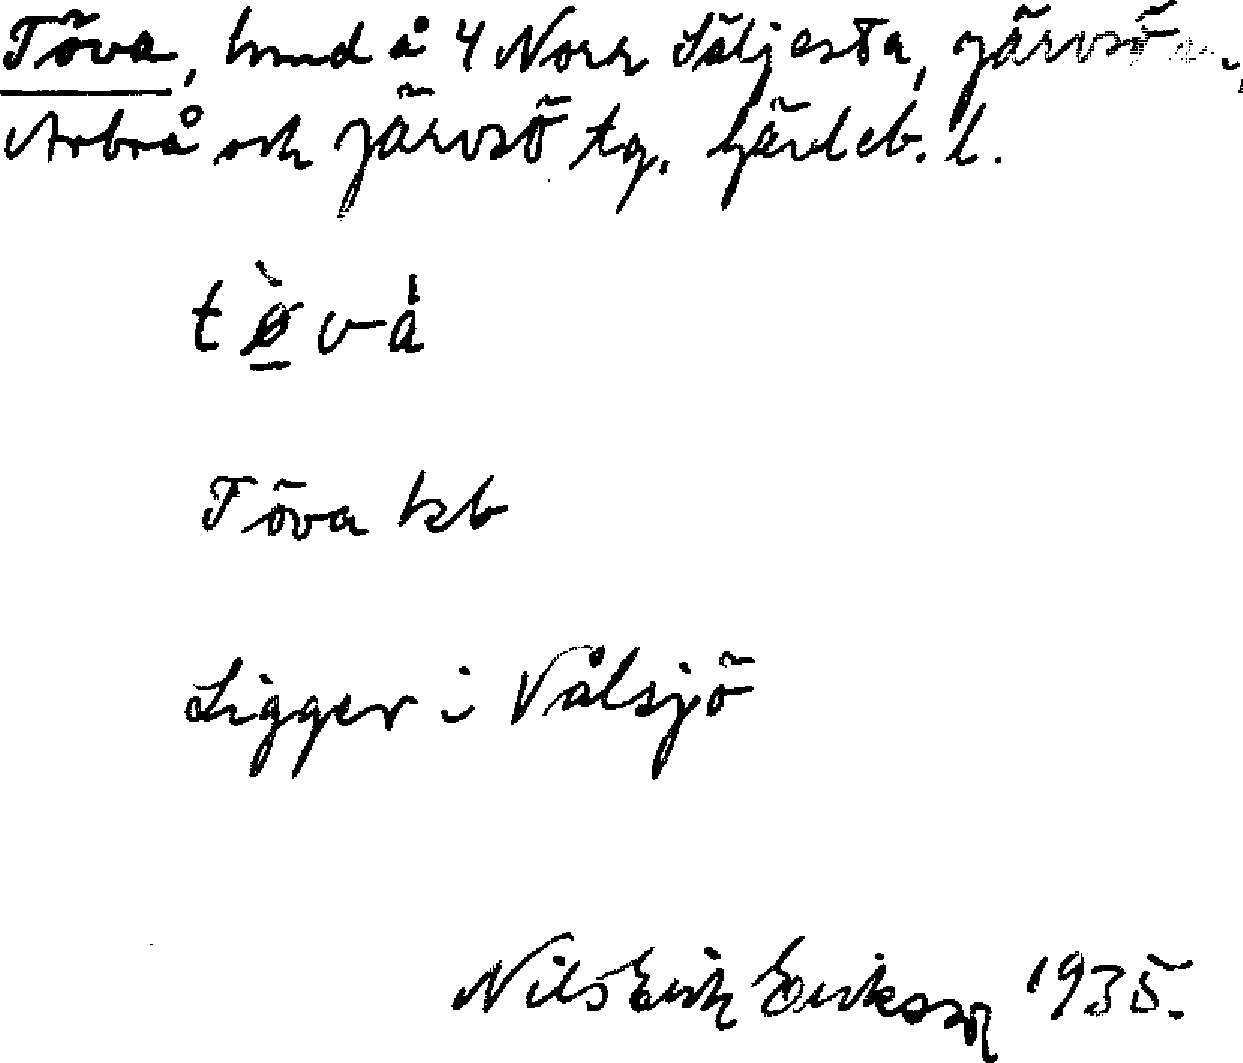 Töva, hmd å 4 Norr Säljesta, Järvsö sn.,
Arbrå och Järvsö tg. Gävleb. l.
tø̀vȧ
Töva kb
Ligger i Vålsjö
Nils Erik Eriksson 1935.